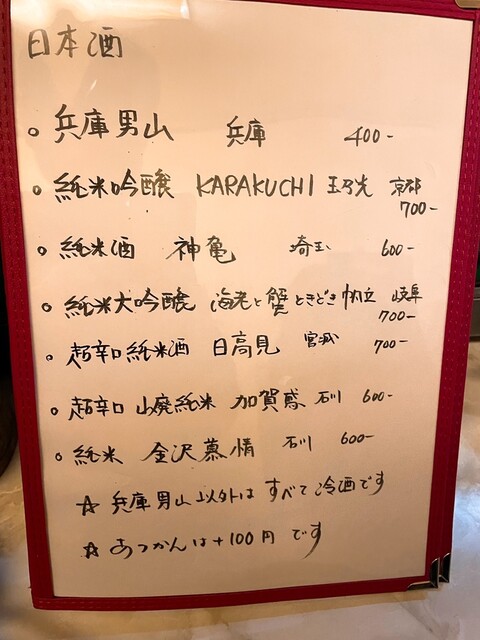 日本酒
○ 兵庫男山 兵庫 400-
○ 純米吟醸 KARAKUCHI 玉乃光 京都 700-
○ 純米酒 神亀 埼玉 600-
○ 純米大吟醸 海老と蟹ときどき帆立 岐阜 700-
○ 超辛口純米酒 日高見 宮城 700-
○ 超辛口 山廃純米 加賀鳶 石川 600-
○ 純米 金沢慕情 石川 600-
☆ 兵庫男山以外は すべて冷酒です
☆ あつかんは+100円です